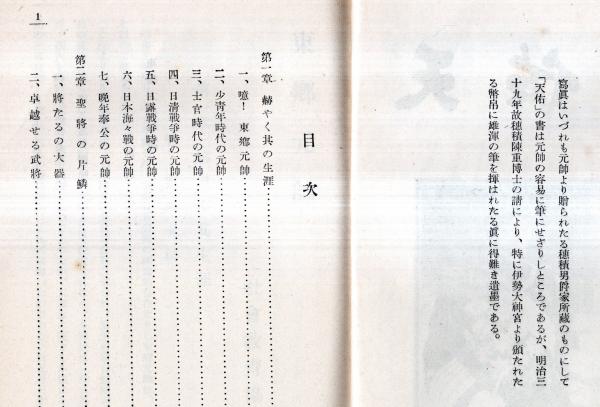 寫眞はいづれも元帥より贈られたる穗積男爵家所藏のものにして
「天佑」の書は元帥の容易に筆にせざりしところであるが、明治三
十九年故穗積陳重博士の請により、特に伊勢大神宮より頒たれた
る幣帛に雄渾の筆を揮はれたる眞に得難き遺墨である。
目次
第一章 赫やく其の生涯
一、噫！東鄕元帥
二、少靑年時代の元帥
三、士官時代の元帥
四、日淸戰爭時の元帥
五、日露戰爭時の元帥
六、日本海々戰の元帥
七、晩年奉公の元帥
第二章 聖將の片鱗
一、將たるの大器
二、卓越せる武將
1